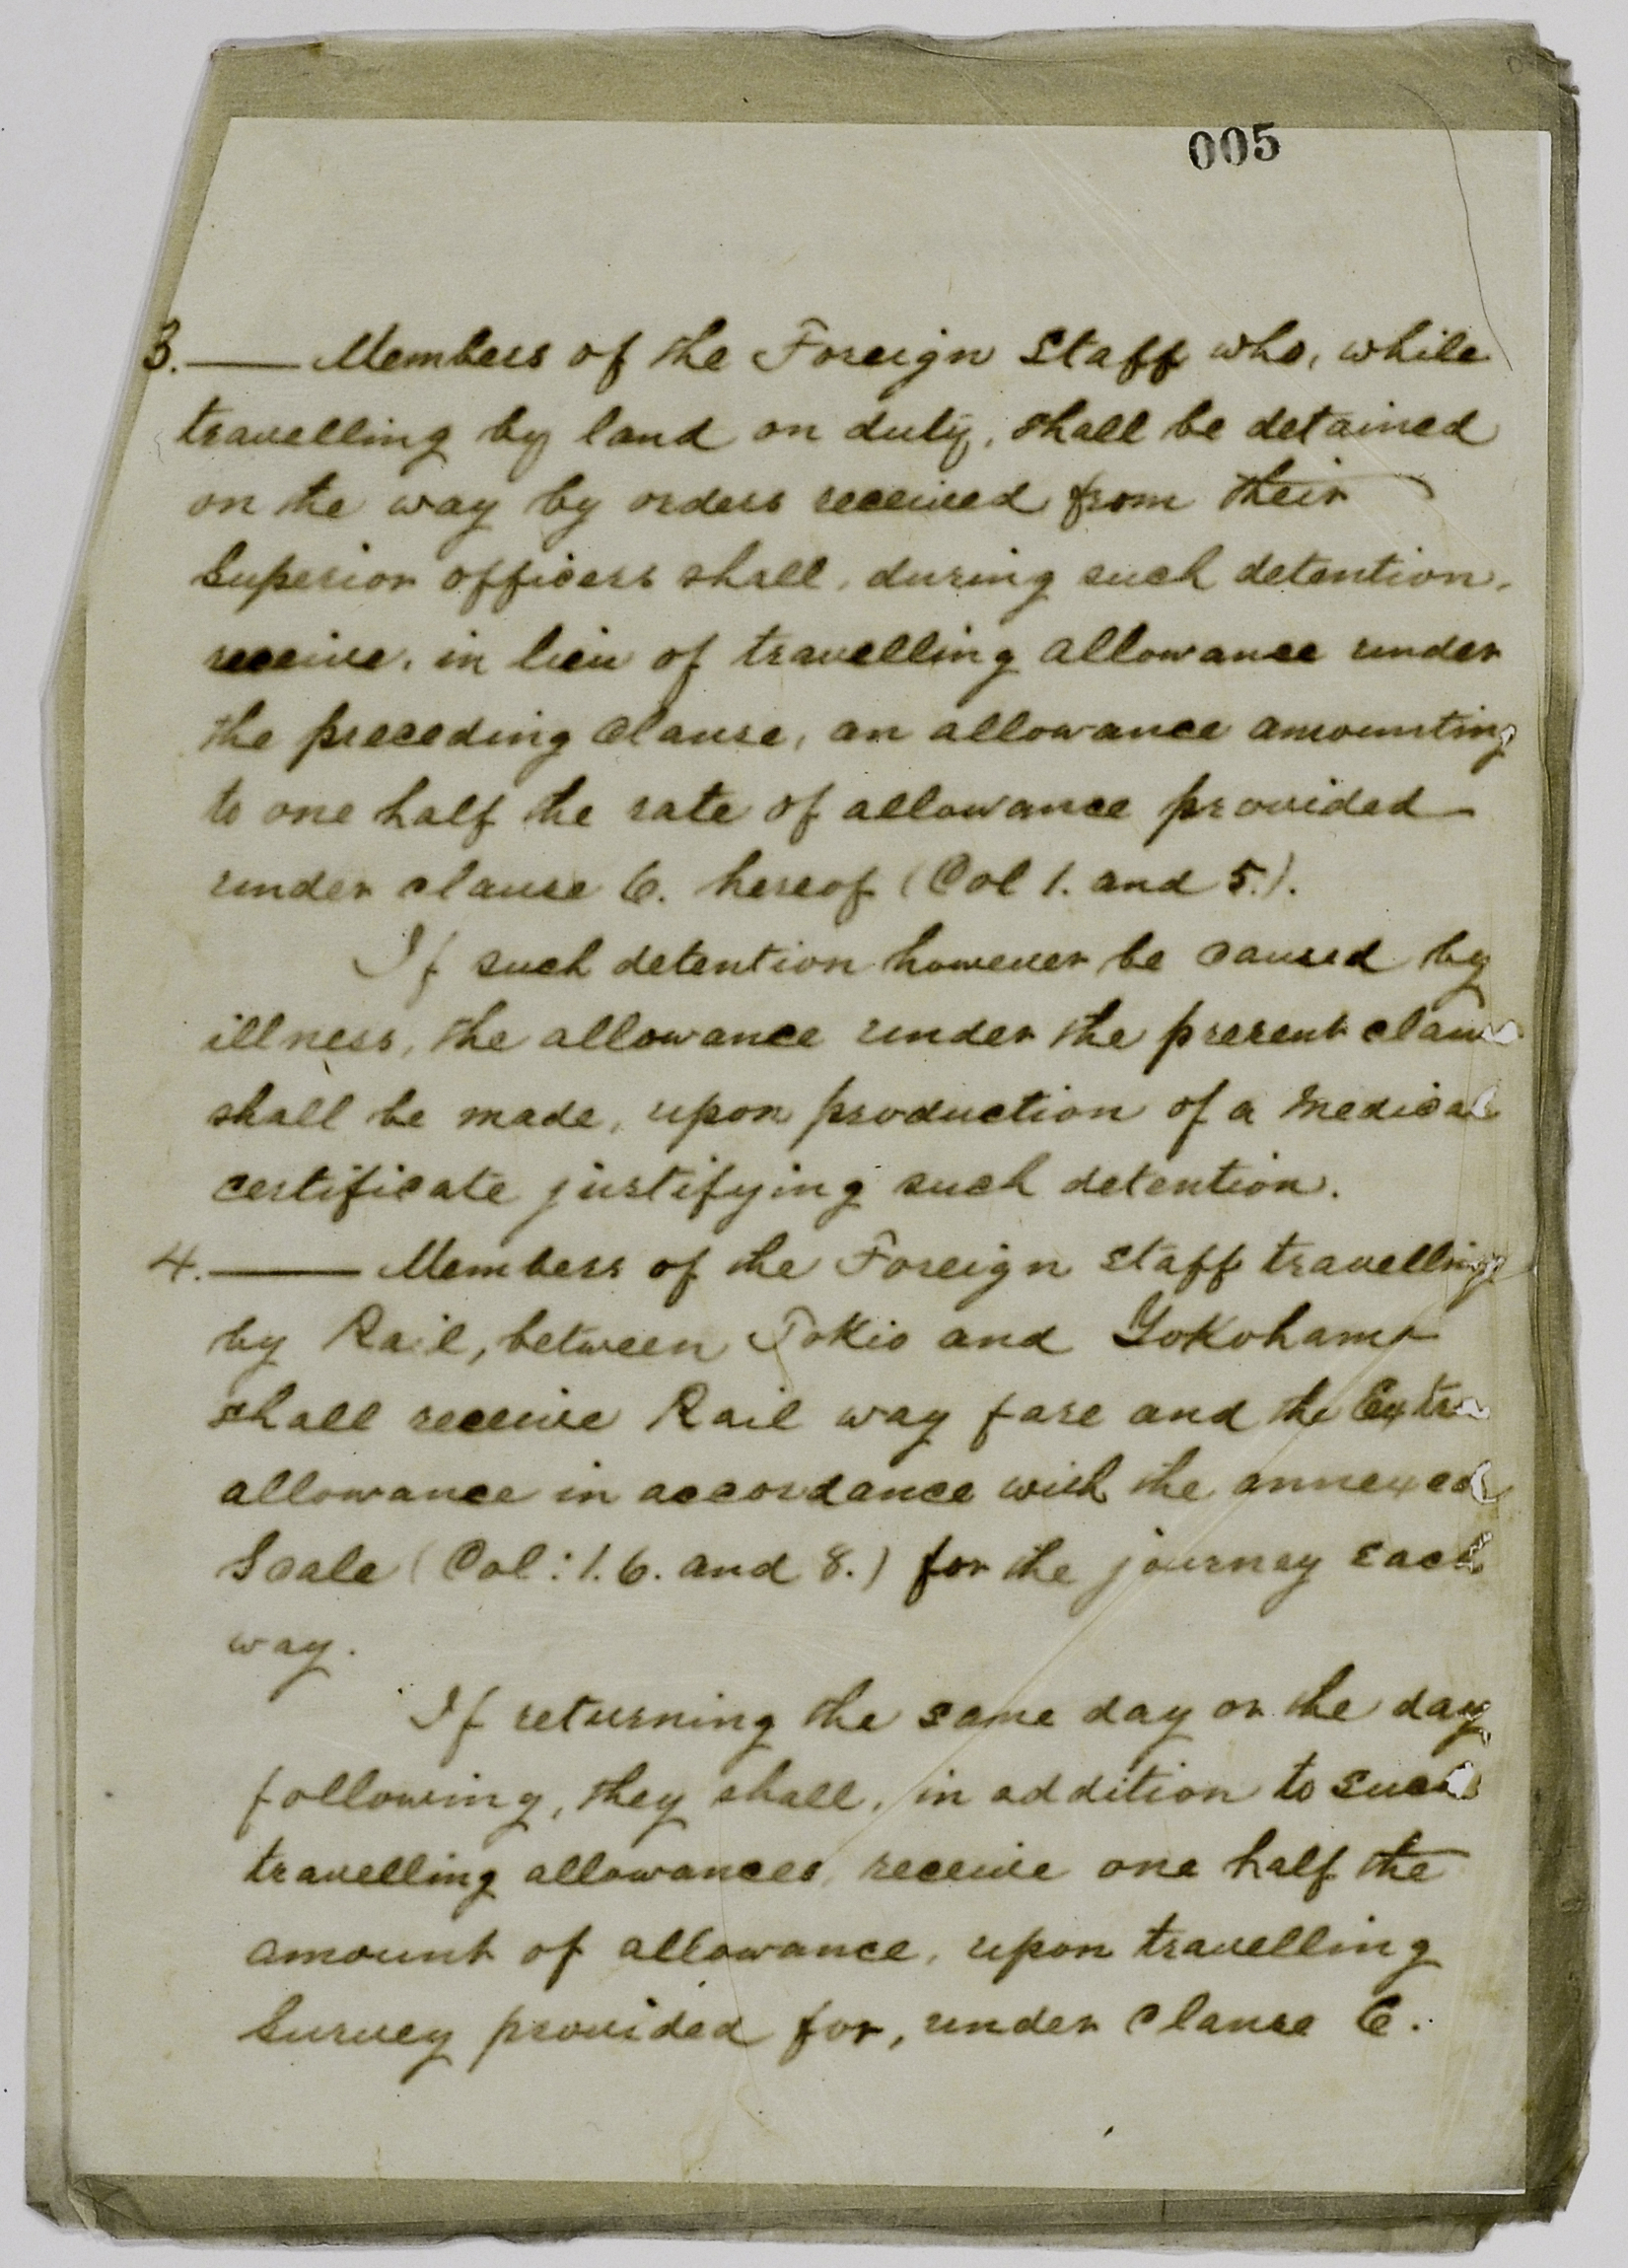 005
3. —— Members of the Foreign Staff who, while
travelling by land on duty, shall be detained
on the way by orders received from their
Superior officers shall, during such detention,
receive, in lieu of travelling allowance under
the preceding clause, an allowance amounting
to one half the rate of allowance provided
under clause 6. hereof (Col 1. and 5.).
If such detention however be caused by
illness, the allowance under the present clau
shall be made, upon production of a medical
certificate justifying such detention.
4. —— Members of the Foreign Staff travelling
by Rail, between Tokio and Yokohama
shall receive Rail way fare and the Extra
allowance in accordance with the annexed
Scale (Col: 1. 6. and 8.) for the journey each
way.
If returning the same day or the day
following, they shall, in addition to such
travelling allowances, receive one half the
amount of allowance, upon travelling
Survey provided for, under clause 6.